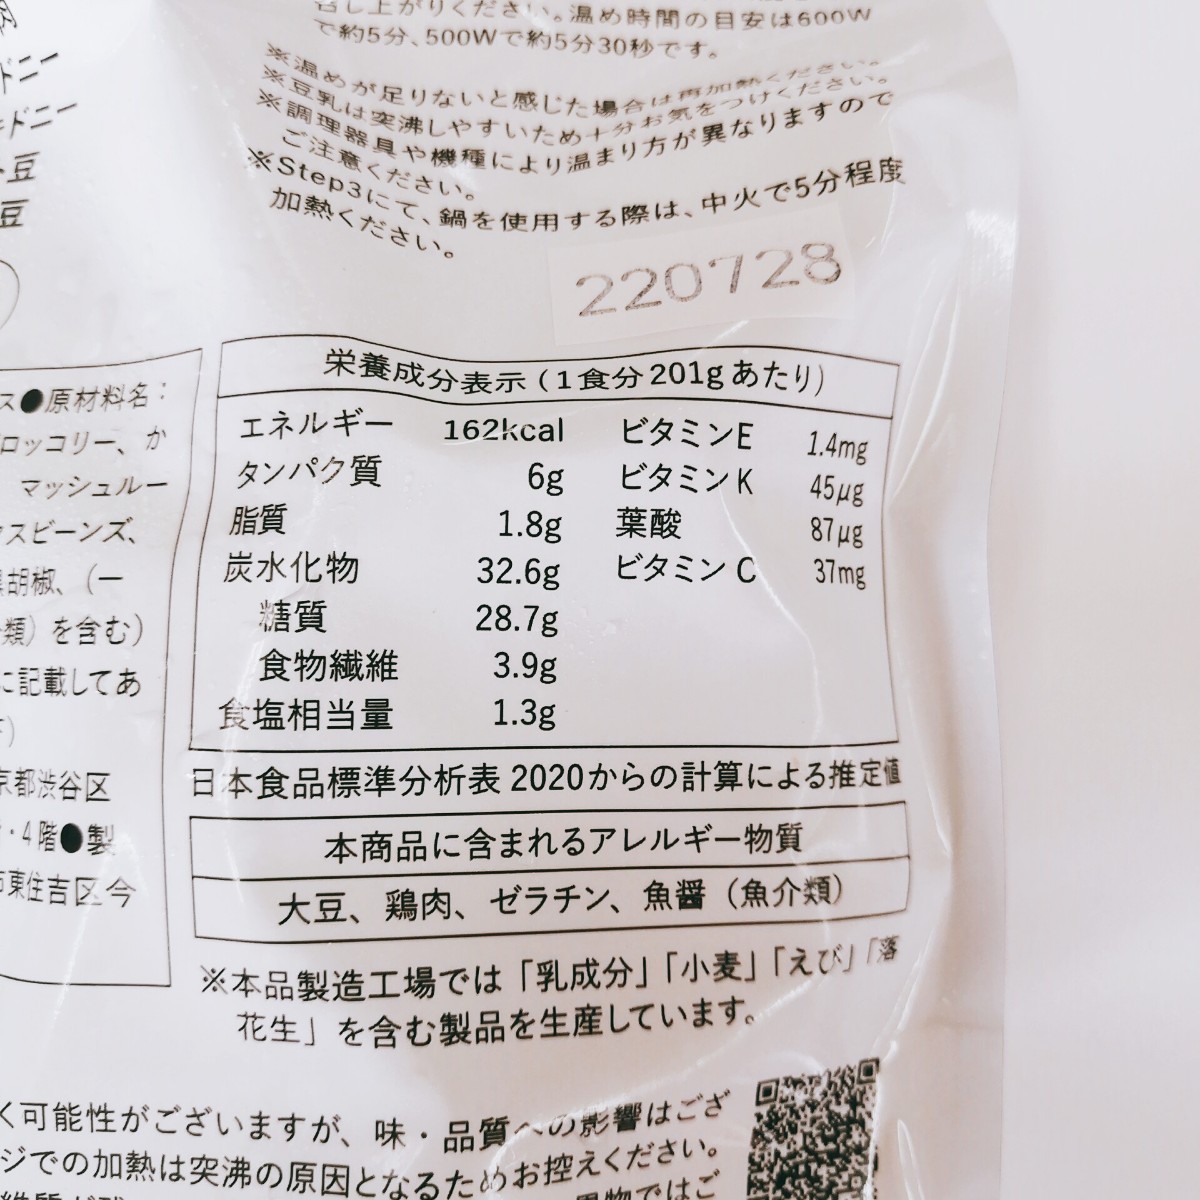 召し上がりください。温め時間の目安は600W
で約5分、500Wで約5分30秒です。
※温めが足りないと感じた場合は再加熱ください。
※豆乳は突沸しやすいため十分お気をつけください。
※調理器具や機種により温まり方が異なりますので
ご注意ください。
※Step3にて、鍋を使用する際は、中火で5分程度
加熱ください。
220728
ドニー
ドニー
豆
豆
ス●原材料名：
ロッコリー、か
マッシュルー
スビーンズ、
胡椒、（一
類）を含む）
に記載してあ
京都渋谷区
・4階●製
東住吉区今
栄養成分表示（1食分201gあたり）
エネルギー 162kcal ビタミンE 1.4mg
タンパク質 6g ビタミンK 45μg
脂質 1.8g 葉酸 87μg
炭水化物 32.6g ビタミンC 37mg
糖質 28.7g
食物繊維 3.9g
食塩相当量 1.3g
日本食品標準分析表 2020からの計算による推定値
本商品に含まれるアレルギー物質
大豆、鶏肉、ゼラチン、魚醤（魚介類）
※本品製造工場では「乳成分」「小麦」「えび」「落
花生」を含む製品を生産しています。
く可能性がございますが、味・品質への影響はござ
ジでの加熱は突沸の原因となるためお控えください。